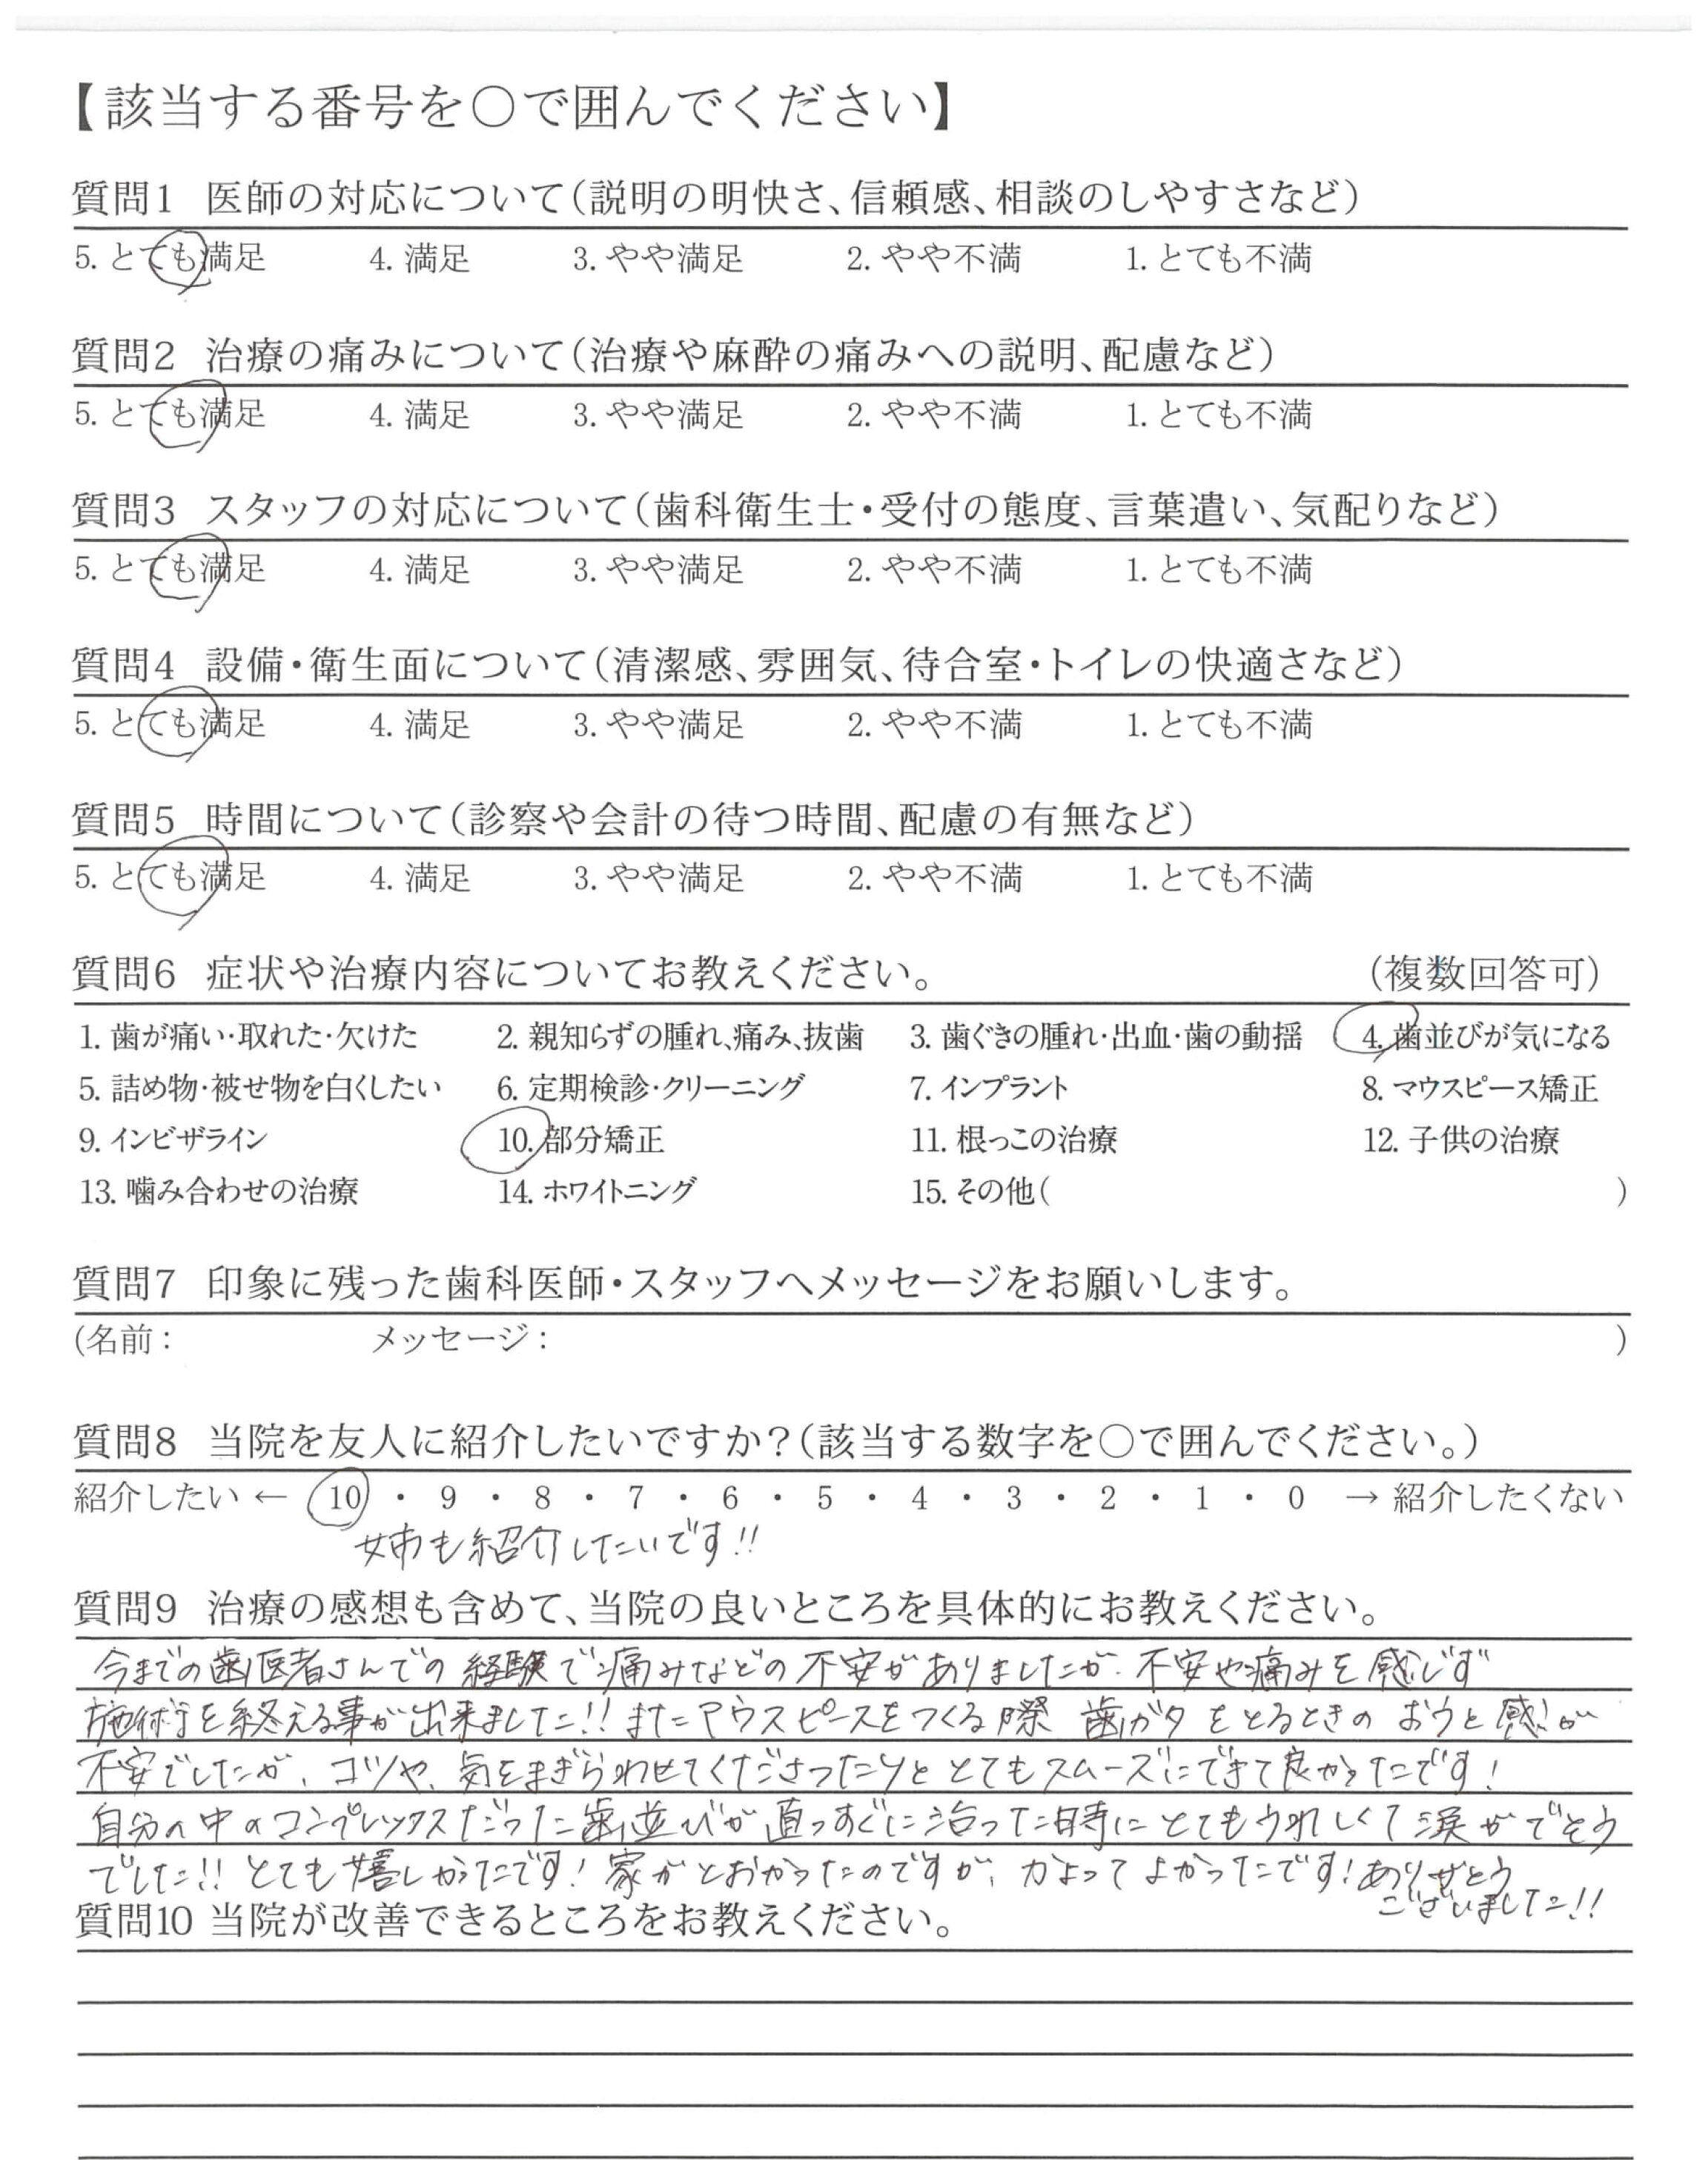 【該当する番号を○で囲んでください】
質問1 医師の対応について(説明の明快さ、信頼感、相談のしやすさなど)
5. とても満足 4. 満足 3. やや満足 2. やや不満 1. とても不満
質問2 治療の痛みについて(治療や麻酔の痛みへの説明、配慮など)
5. とても満足 4. 満足 3. やや満足 2. やや不満 1. とても不満
質問3 スタッフの対応について(歯科衛生士・受付の態度、言葉遣い、気配りなど)
5. とても満足 4. 満足 3. やや満足 2. やや不満 1. とても不満
質問4 設備・衛生面について(清潔感、雰囲気、待合室・トイレの快適さなど)
5. とても満足 4. 満足 3. やや満足 2. やや不満 1. とても不満
質問5 時間について(診察や会計の待つ時間、配慮の有無など)
5. とても満足 4. 満足 3. やや満足 2. やや不満 1. とても不満
質問6 症状や治療内容についてお教えください。 (複数回答可)
1. 歯が痛い・取れた・欠けた 2. 親知らずの腫れ、痛み、抜歯 3. 歯ぐきの腫れ・出血・歯の動揺 4. 歯並びが気になる
5. 詰め物・被せ物を白くしたい 6. 定期検診・クリーニング 7. インプラント 8. マウスピース矯正
9. インビザライン 10. 部分矯正 11. 根っこの治療 12. 子供の治療
13. 噛み合わせの治療 14. ホワイトニング 15. その他( )
質問7 印象に残った歯科医師・スタッフへメッセージをお願いします。
(名前: メッセージ: )
質問8 当院を友人に紹介したいですか?(該当する数字を○で囲んでください。)
紹介したい ← 10 ・ 9 ・ 8 ・ 7 ・ 6 ・ 5 ・ 4 ・ 3 ・ 2 ・ 1 ・ 0 → 紹介したくない
姉も紹介したいです!!
質問9 治療の感想も含めて、当院の良いところを具体的にお教えください。
今までの歯医者さんでの経験で痛みなどの不安がありましたが、不安や痛みを感じず
施術を終える事が出来ました!!またマウスピースをつくる際 歯ガタをとるときのおうと感が
不安でしたが、コツや、気をまぎらわせてくださったりととてもスムーズにできて良かったです!
自分の中のコンプレックスだった歯並びが直っすぐに治った時にとてもうれしくて涙がでそう
でした!!とても嬉しかったです!家がとおかったのですが、かよってよかったです!ありがとう
ございました!!
質問10 当院が改善できるところをお教えください。